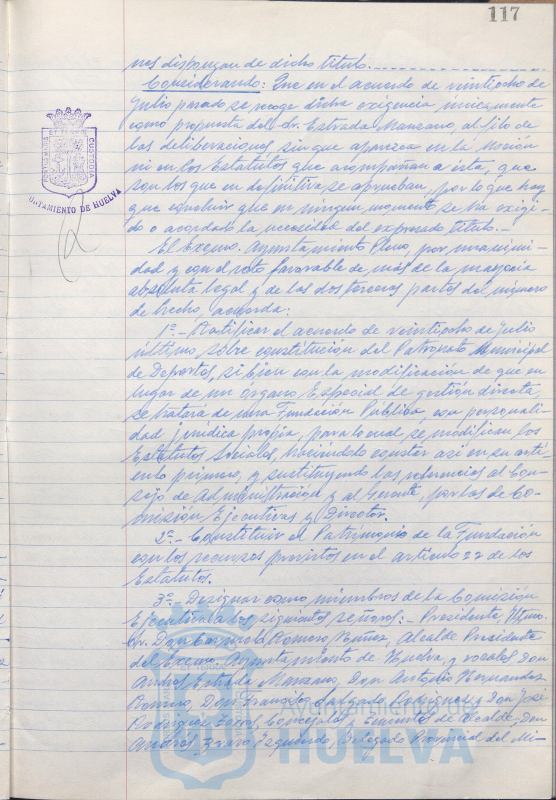 117
nes dispongan de dicho título.
Considerando: Que en el acuerdo de veintiocho de
Julio pasado se recoge dicha exigencia unicamente
como propuesta del Sr. Estrada Manzano, al filo de
las deliberaciones, sin que aparezca en la Moción
ni en los Estatutos que acompañan a ésta, que
son los que en definitiva se aprueban, por lo que hay
que concluir que en ningun momento se ha exigi-
do o acordado la necesidad del expresado título.-
El Excmo. Ayuntamiento Pleno, por unanimi-
dad y con el voto favorable de más de la mayoría
absoluta legal y de las dos terceras partes del número
de hecho, acuerda:
1º.- Ratificar el acuerdo de veintiocho de Julio
último sobre constitución del Patronato Municipal
de Deportes, si bien con la modificación de que en
lugar de un Órgano Especial de gestión directa,
se tratará de una Fundación Pública con personali-
dad jurídica propia, para lo cual se modifican los
Estatutos Sociales, haciéndolo constar así en su artí-
culo primero, y sustituyendo las referencias al Con-
sejo de Administración y al Gerente, por las de Co-
misión Ejecutiva y Director.
2º.- Constituir el Patrimonio de la Fundación
con los recursos previstos en el artículo 22 de los
Estatutos.
3º.- Designar como miembros de la Comisión
Ejecutiva a los siguientes señores:- Presidente, Iltmo.
Sr. Don Carmelo Romero Núñez, Alcalde Presidente
del Excmo. Ayuntamiento de Huelva, y vocales Don
Andrés Estrada Manzano, Don Antonio Hernández
Romero, Don Francisco Salgado Rodríguez y Don José
Rodríguez Concejales y Tenientes de Alcalde, Don
Andrés Bravo Izquierdo, Delegado Provincial del Mi-
CUSTODIA
AYUNTAMIENTO DE HUELVA
Ayuntamiento de
HUELVA